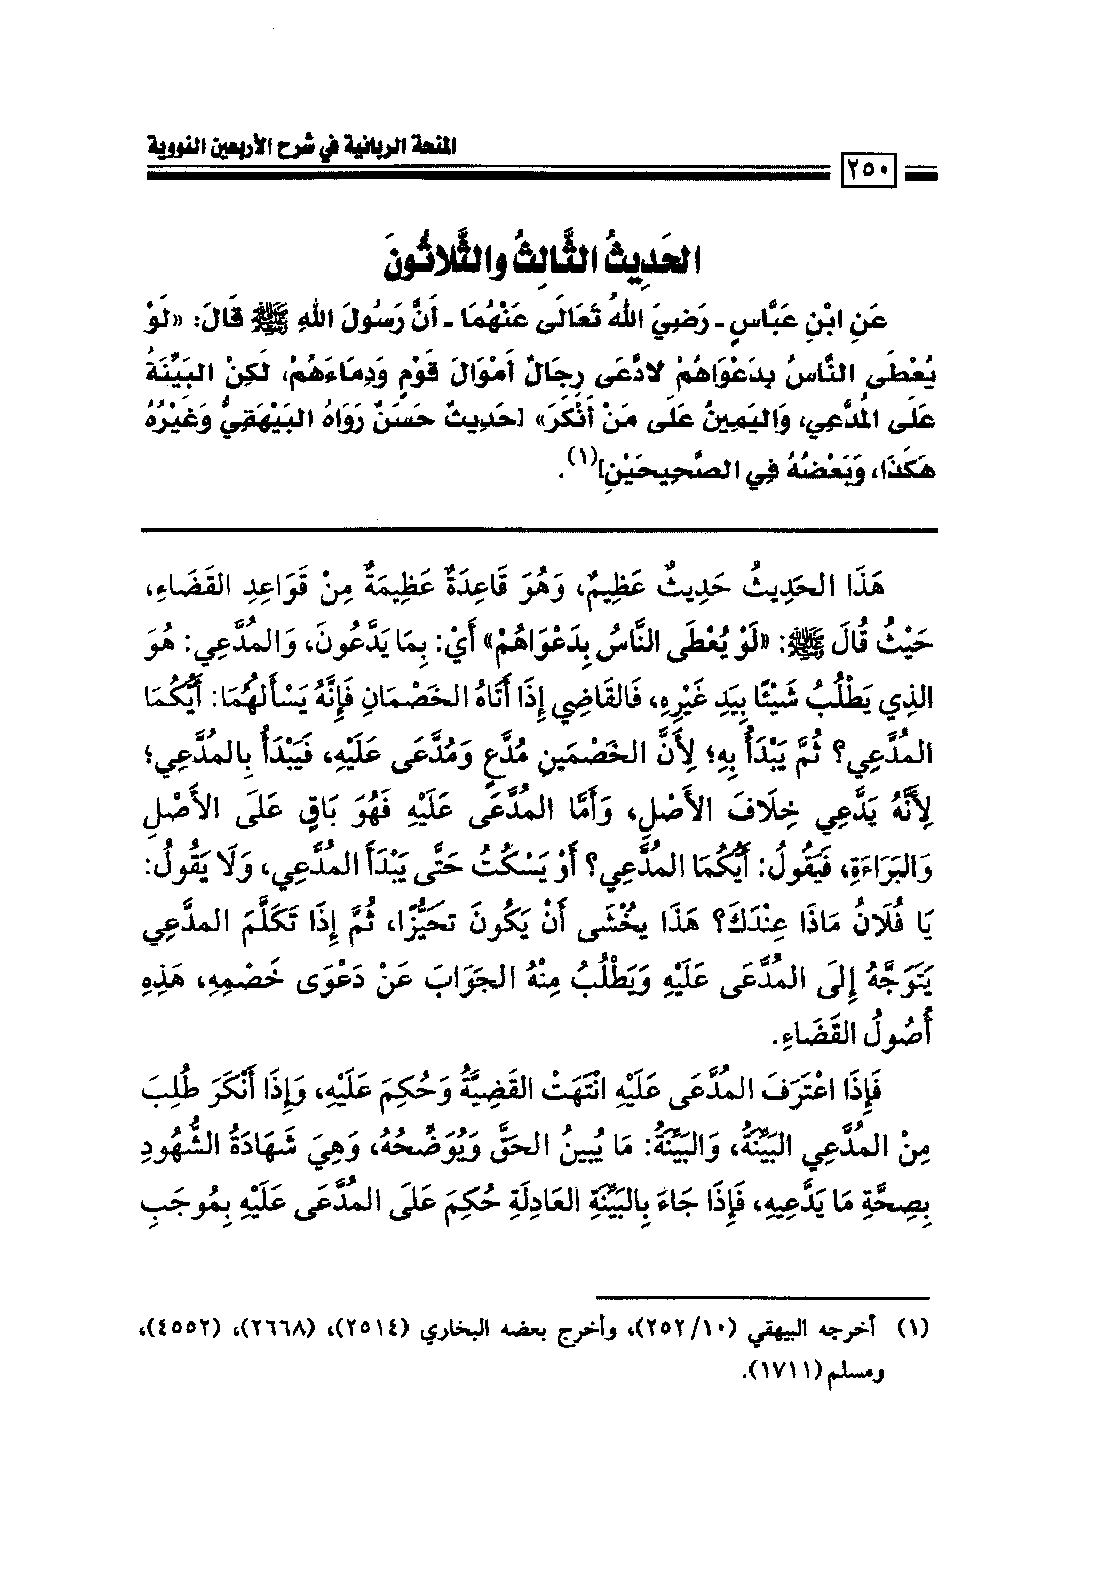 المنحة الربانية في شرح الأربعين النووية
٢٥٠
الحَدِيثُ الثَّالِثُ والثَّلاثُونَ
عَنِ ابْنِ عَبَّاسٍ - رَضِيَ اللهُ تَعَالَى عَنْهُمَا - أَنَّ رَسُولَ اللهِ ﷺ قَالَ: «لَوْ
يُعْطَى النَّاسُ بِدَعْوَاهُمْ لادَّعَى رِجَالٌ أَمْوَالَ قَوْمٍ وَدِمَاءَهُمْ، لَكِنْ البَيِّنَةُ
عَلَى المُدَّعِي، وَاليَمِينُ عَلَى مَنْ أَنْكَرَ» [حَدِيثٌ حَسَنٌ رَوَاهُ البَيْهَقِيُّ وَغَيْرُهُ
هَكَذَا، وَبَعْضُهُ فِي الصَّحِيحَيْنِ](١).
هَذَا الحَدِيثُ حَدِيثٌ عَظِيمٌ، وَهُوَ قَاعِدَةٌ عَظِيمَةٌ مِنْ قَوَاعِدِ القَضَاءِ،
حَيْثُ قَالَ ﷺ: «لَوْ يُعْطَى النَّاسُ بِدَعْوَاهُمْ» أَيْ: بِمَا يَدَّعُونَ، وَالمُدَّعِي: هُوَ
الذِي يَطْلُبُ شَيْئًا بِيَدِ غَيْرِهِ، فَالقَاضِي إِذَا أَتَاهُ الخَصْمَانِ فَإِنَّهُ يَسْأَلهُمَا: أَيُّكُمَا
المُدَّعِي؟ ثُمَّ يَبْدَأُ بِهِ؛ لِأَنَّ الخَصْمَينِ مُدَّعٍ وَمُدَّعَى عَلَيْهِ، فَيَبْدَأُ بِالمُدَّعِي؛
لِأَنَّهُ يَدَّعِي خِلَافَ الأَصْلِ، وَأَمَّا المُدَّعَى عَلَيْهِ فَهُوَ بَاقٍ عَلَى الأَصْلِ
وَالبَرَاءَةِ، فَيَقُولُ: أَيُّكُمَا المُدَّعِي؟ أَوْ يَسْكُتُ حَتَّى يَبْدَأَ المُدَّعِي، وَلَا يَقُولُ:
يَا فُلَانُ مَاذَا عِنْدَكَ؟ هَذَا يُخْشَى أَنْ يَكُونَ تَحَيُّزًا، ثُمَّ إِذَا تَكَلَّمَ المدَّعِي
يَتَوَجَّهُ إِلَى المُدَّعَى عَلَيْهِ وَيَطْلُبُ مِنْهُ الجَوَابَ عَنْ دَعْوَى خَصْمِهِ، هَذِهِ
أُصُولُ القَضَاءِ.
فَإِذَا اعْتَرَفَ المُدَّعَى عَلَيْهِ انْتَهَتْ القَضِيَّةُ وَحُكِمَ عَلَيْهِ، وَإِذَا أَنْكَرَ طُلِبَ
مِنْ المُدَّعِي البَيِّنَةُ، وَالبَيِّنَةُ: مَا يُبِينُ الحَقَّ وَيُوَضِّحُهُ، وَهِيَ شَهَادَةُ الشُّهُودِ
بِصِحَّةِ مَا يَدَّعِيهِ، فَإِذَا جَاءَ بِالبَيِّنَةِ العَادِلَةِ حُكِمَ عَلَى المُدَّعَى عَلَيْهِ بِمُوجَبِ
(١) أخرجه البيهقي (١٠/٢٥٢)، وأخرج بعضه البخاري (٢٥١٤)، (٢٦٦٨)، (٤٥٥٢)،
ومسلم (١٧١١).